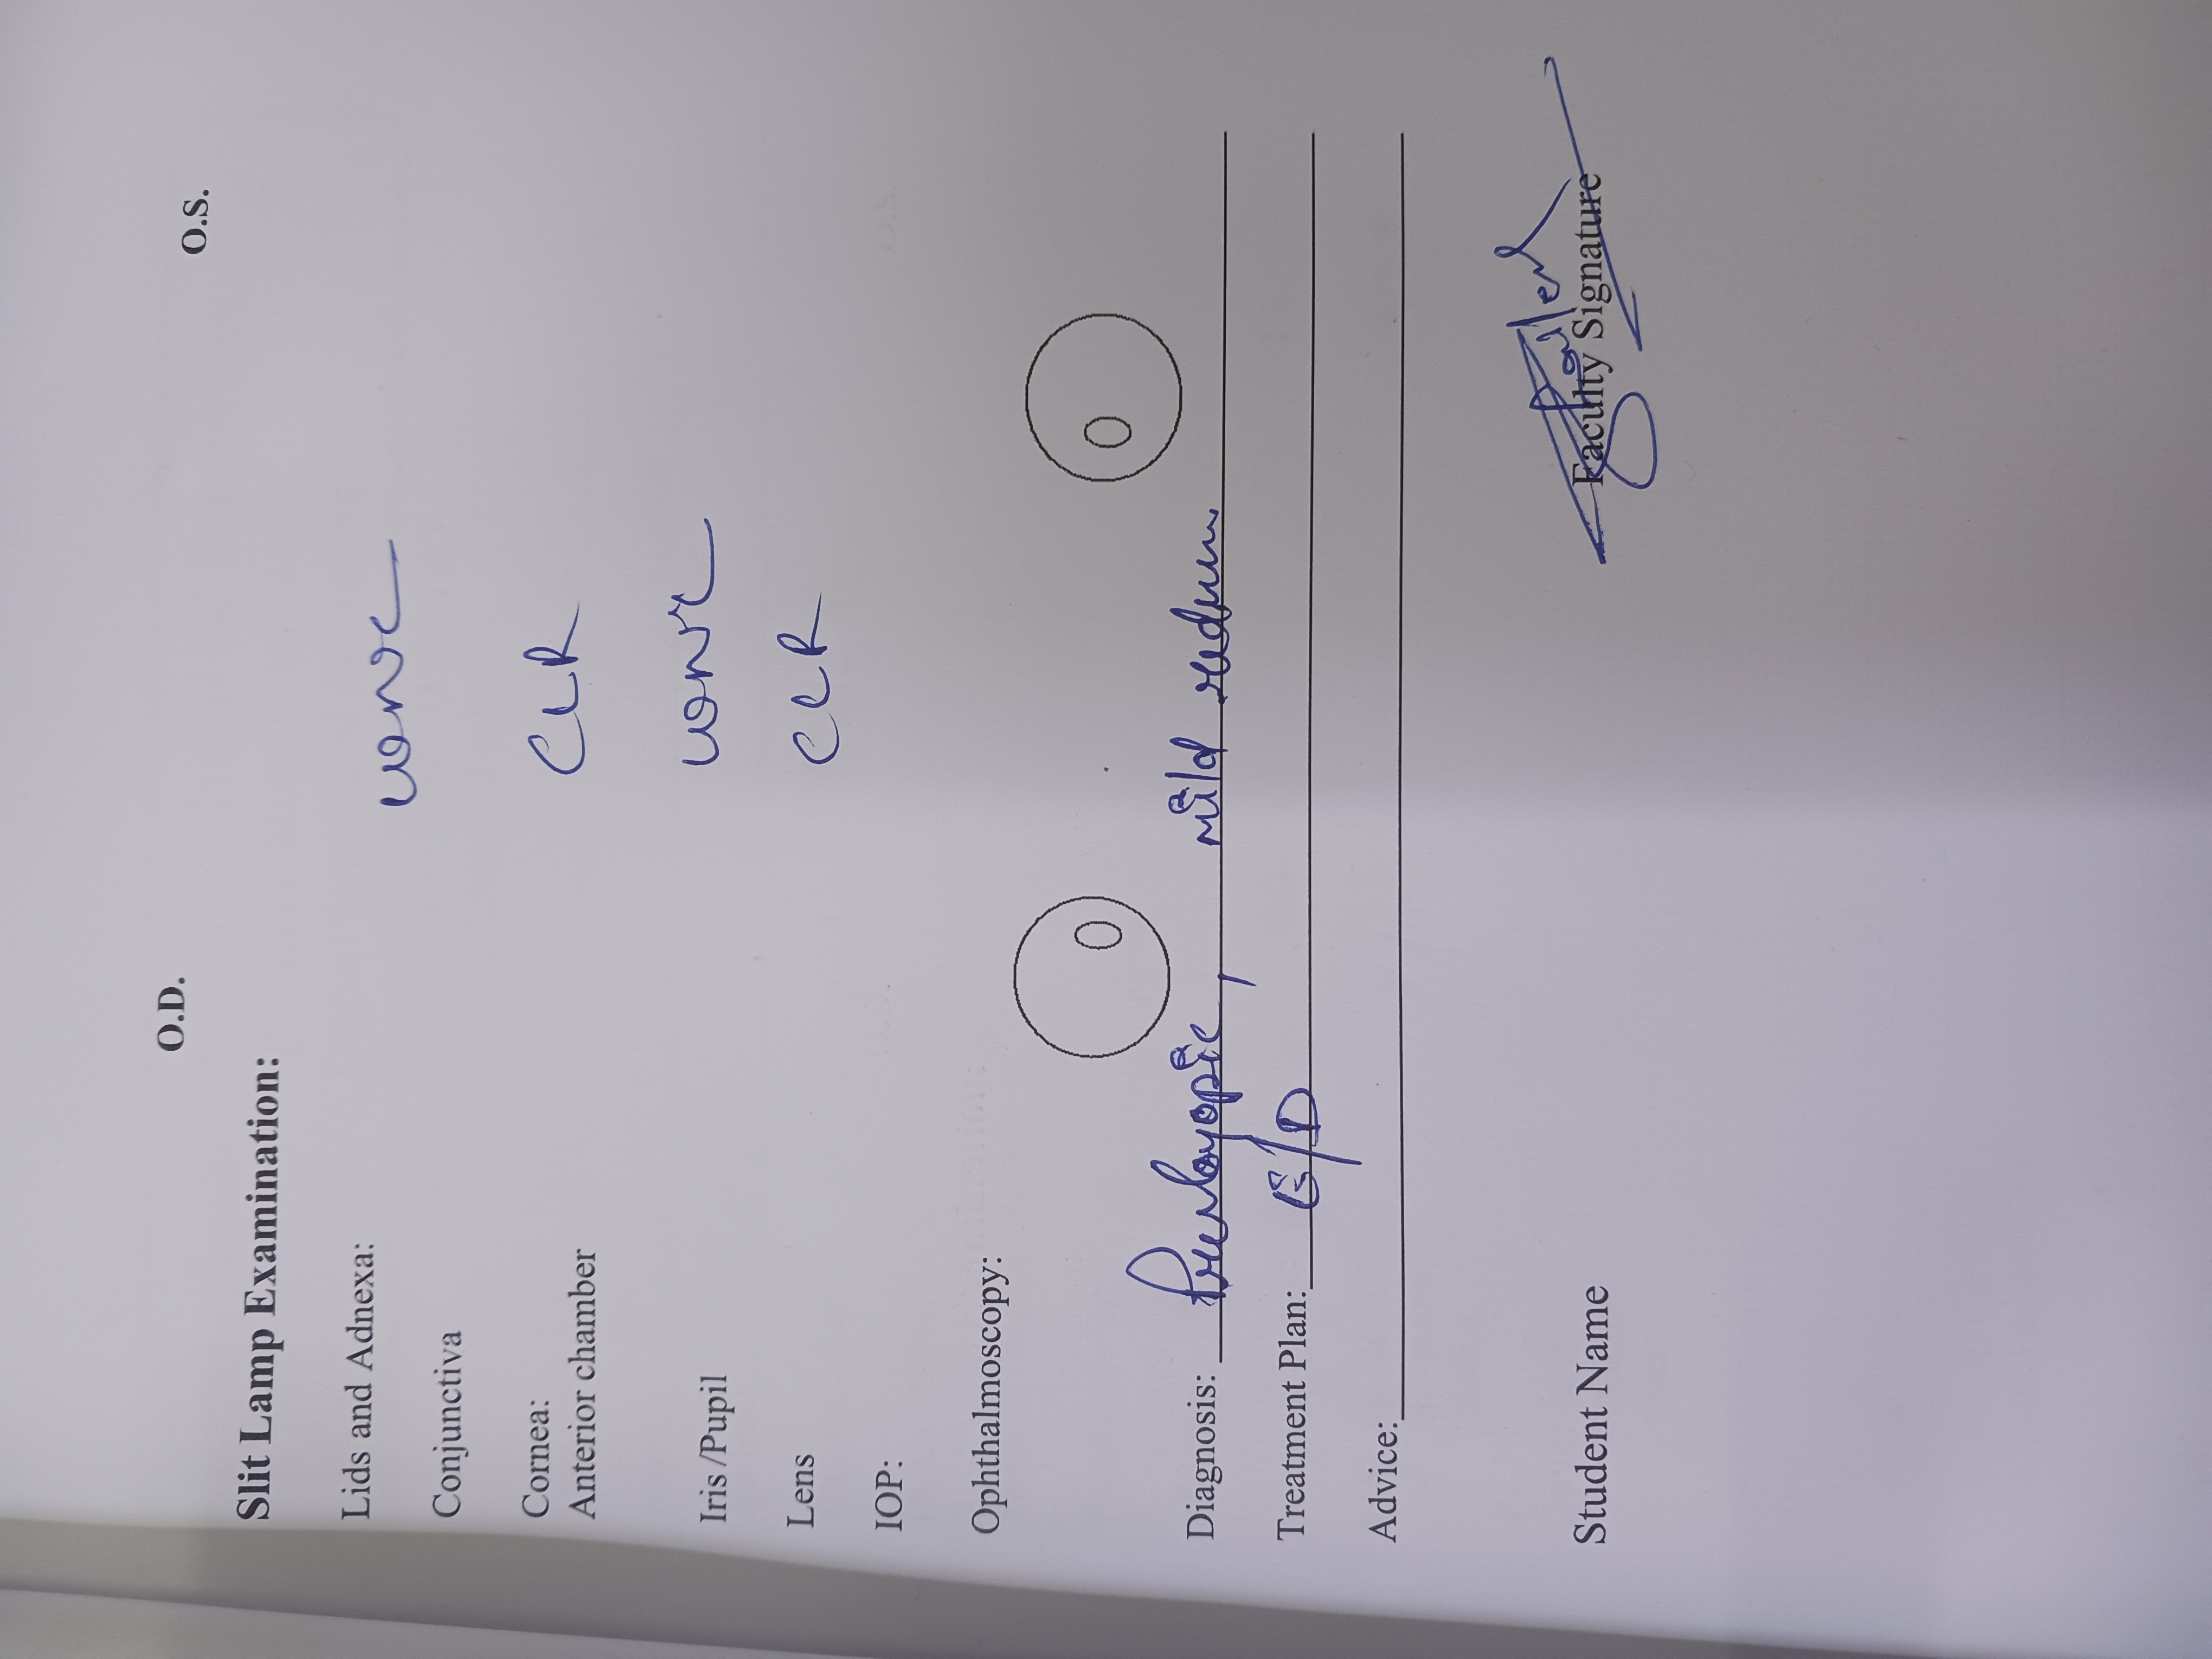 O.D. O.S.
Slit Lamp Examination:
Lids and Adnexa:
Conjunctiva
Cornea: CLR
Anterior chamber
Iris /Pupil
Lens CLR
IOP:
Ophthalmoscopy:
Diagnosis: , mild
Treatment Plan: G/D
Advice:
Student Name Faculty Signature